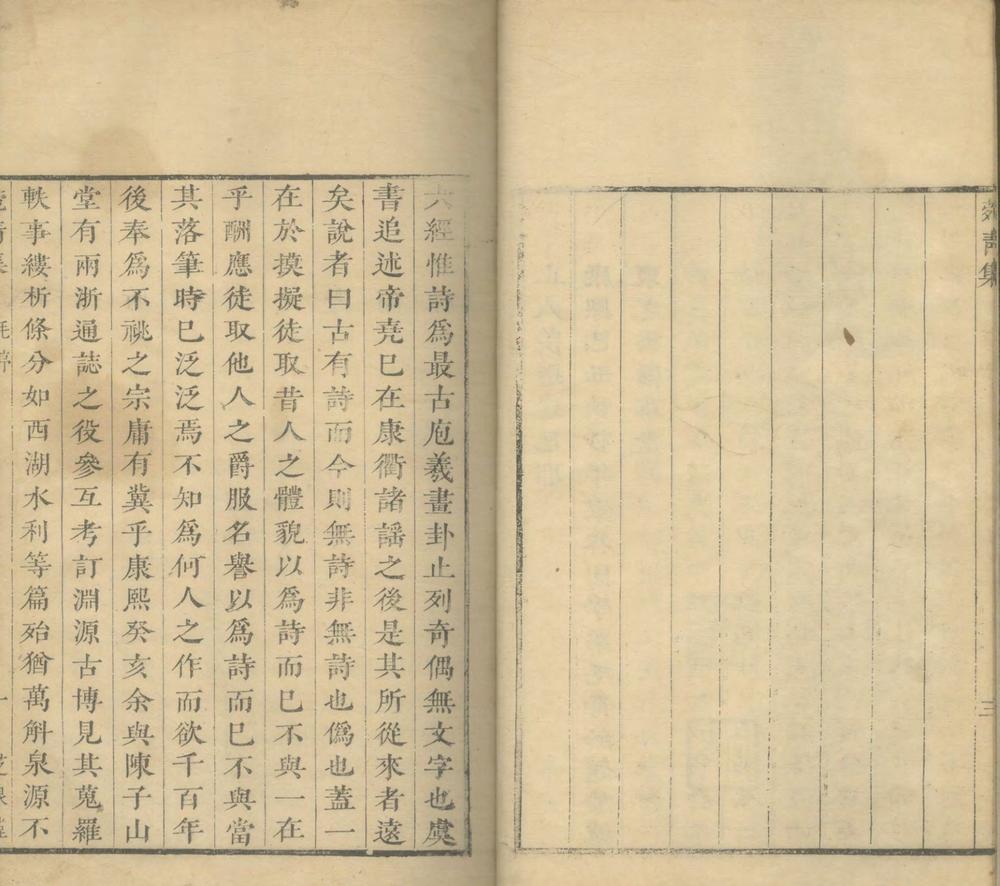 集
三
六經惟詩爲最古庖羲畫卦止列奇偶無文字也虞
書追述帝堯巳在康衢諸謡之後是其所從來者遠
矣說者曰古有詩而今則無詩非無詩也僞也蓋一
在於摸擬徒取昔人之體貌以爲詩而巳不與一在
乎酬應徒取他人之爵服名譽以爲詩而巳不與當
其落筆時巳泛泛焉不知爲何人之作而欲千百年
後奉爲不祧之宗庸有冀乎康熙癸亥余與陳子山
堂有兩浙通誌之役參互考訂淵源古博見其蒐羅
軼事縷析條分如西湖水利等篇殆猶萬斛泉源不